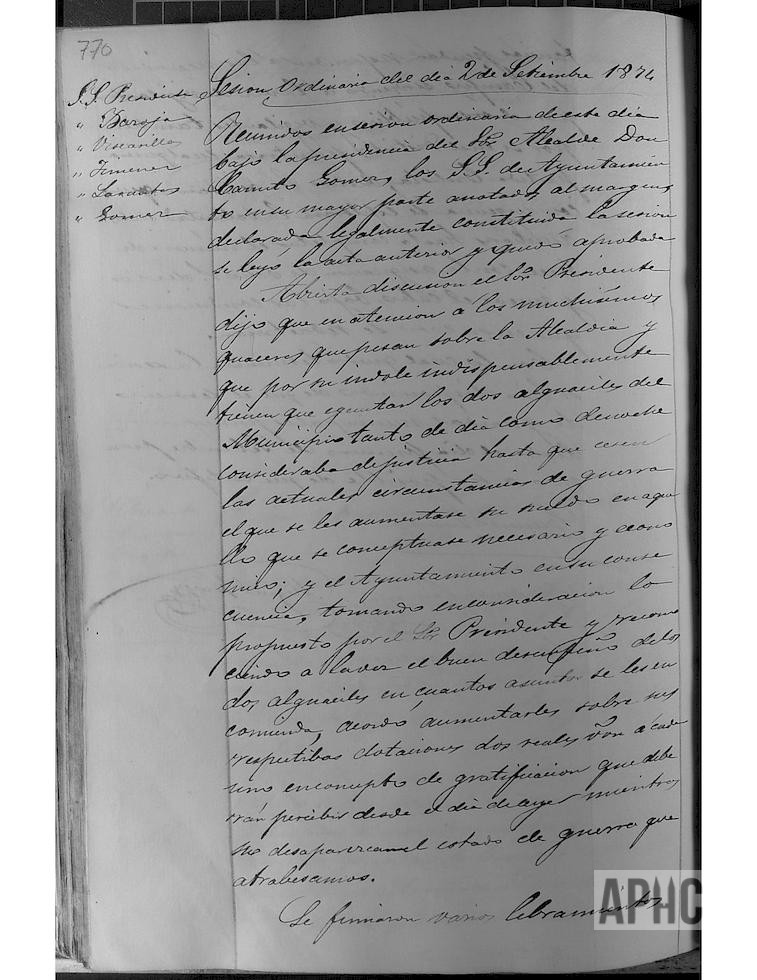 770
Sesion Ordinaria del dia 2 de Setiembre 1874
S.S. Presidente
" Baroja
" Viscarillas
" Jimenez
" Landatas
" Gomez
Reunidos en sesion ordinaria de este dia
bajo la presidencia del Sor. Alcalde Don
Camilo Gomez, los S.S. de Ayuntamien
to en su mayor parte anotados al margen,
declarada legalmente constituida la sesion
se leyó la acta anterior y quedó aprobada
Abierta discusion el Sor. Presidente
dijo que en atencion á los muchisimos
quaceres que pesan sobre la Alcaldia y
que por su indole indispensablemente
tienen que egecutar los dos alguaciles del
Municipio tanto de dia como de noche
consideraba de justicia hasta que cesen
las actuales circunstancias de guerra
el que se les aumentase su sueldo en aque
llo que se conceptuase necesario y econo
mico; y el Ayuntamiento en su conse
cuencia, tomando en consideracion lo
propuesto por el Sor. Presidente y recono
ciendo a la vez el buen desempeño de los
dos alguaciles en cuantos asuntos se les en
comienda, acordó aumentarles sobre sus
respectibas dotaciones dos reales von á cada
uno en concepto de gratificacion que debe
rán percibir desde el dia de ayer mientras
no desaparezca el estado de guerra que
atrabesamos.
Se firmaron varios libramientos
APHC